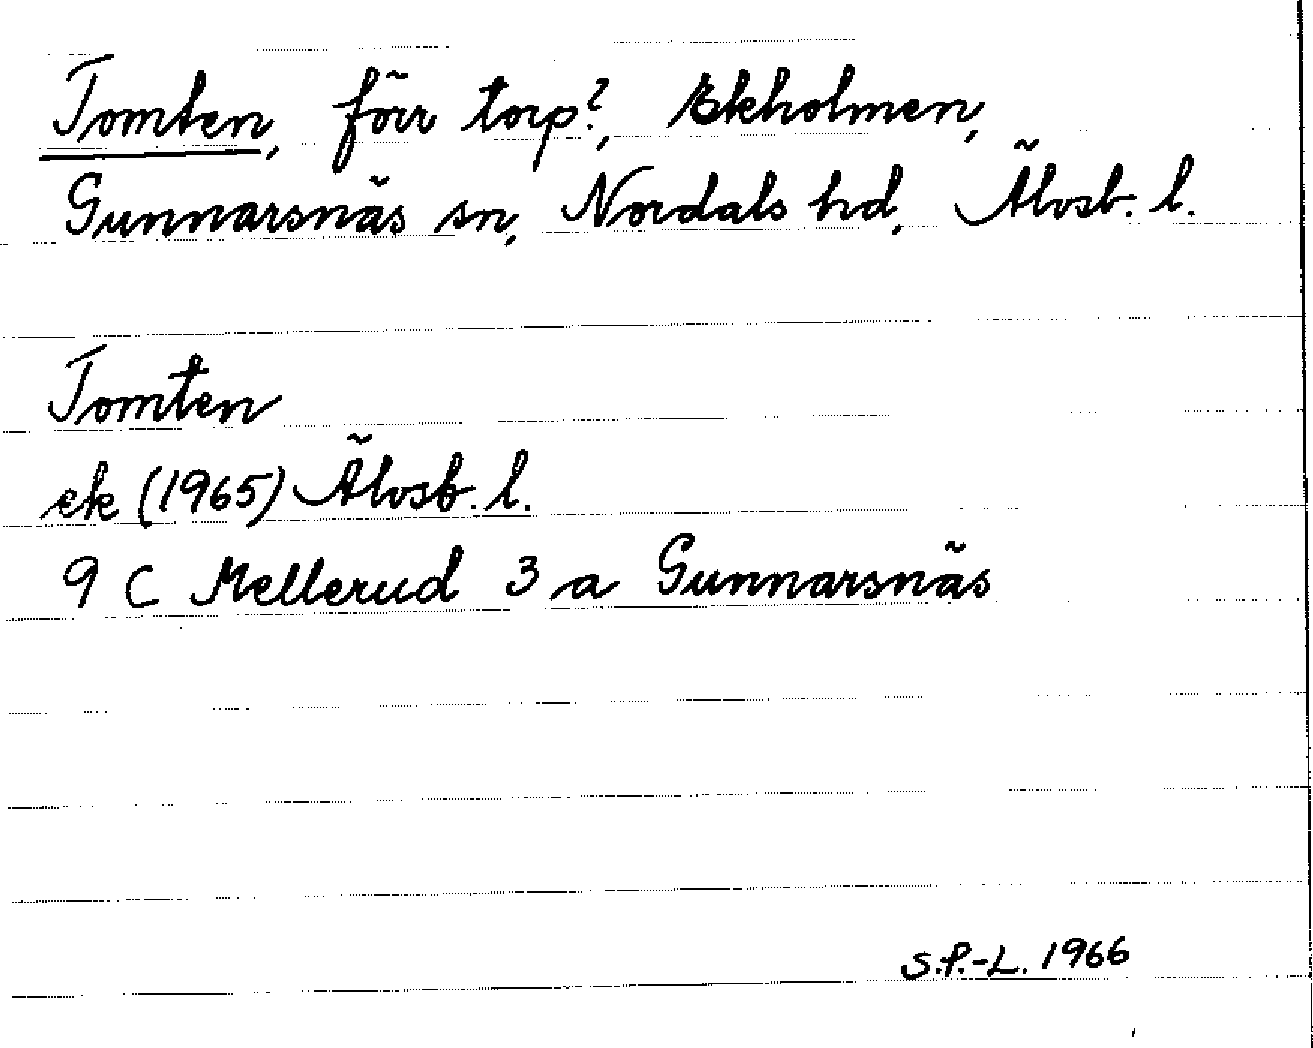 Tomten, förr torp?, Ekholmen,
Gunnarsnäs sn, Nordals hd, Älvsb. l.
Tomten
ek (1965) Älvsb. l.
9 C Mellerud 3 a Gunnarsnäs
S.P.-L. 1966